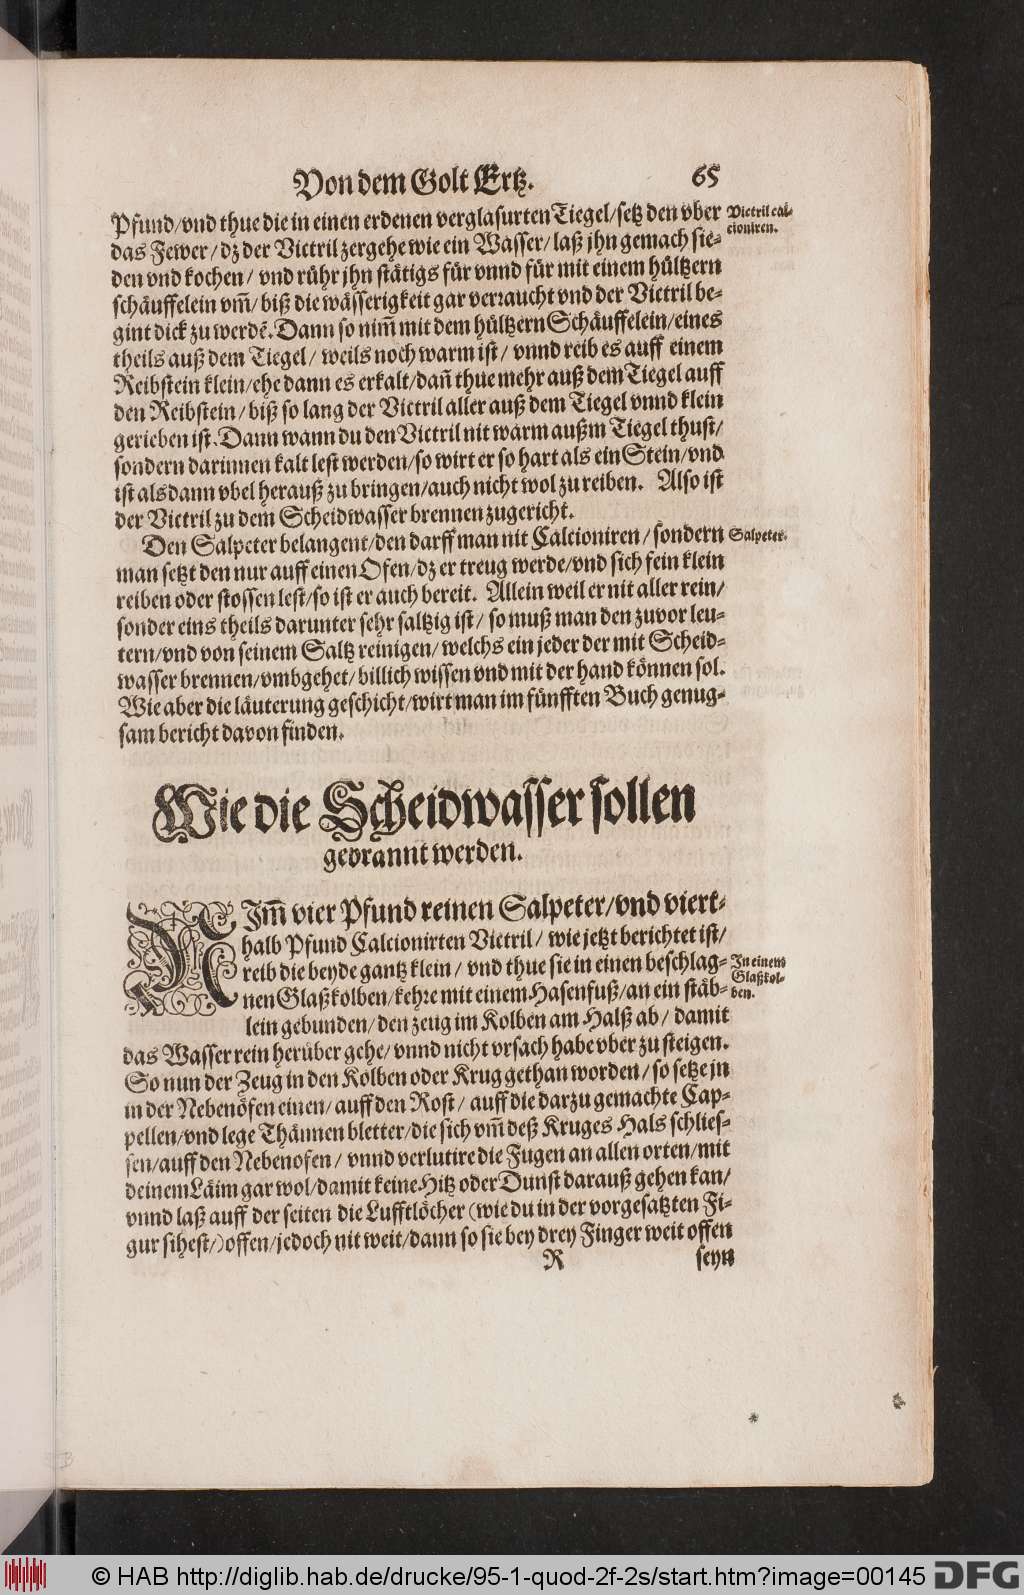 Von dem Golt Ertz. 65
Pfund/vnd thue die in einen erdenen verglasurten Tiegel/setz den vber
Victril cal-
cioniren.
das Fewer/dz der Victril zergehe wie ein Wasser/laß jhn gemach sie-
den vnd kochen/ vnd rühr jhn stätigs für vnnd für mit einem hültzern
schäuffelein vm̃/ biß die wässerigkeit gar verraucht vnd der Victril be-
gint dick zu werdẽ. Dann so nim̃ mit dem hültzern Schäuffelein/eines
theils auß dem Tiegel/ weils noch warm ist/ vnnd reib es auff einem
Reibstein klein/ehe dann es erkalt/dañ thue mehr auß dem Tiegel auff
den Reibstein/ biß so lang der Victril aller auß dem Tiegel vnnd klein
gerieben ist. Dann wann du den Victril nit warm außm Tiegel thust/
sondern darinnen kalt lest werden/so wirt er so hart als ein Stein/vnd
ist alsdann vbel herauß zu bringen/auch nicht wol zu reiben. Also ist
der Victril zu dem Scheidwasser brennen zugericht.
Den Salpeter belangent/den darff man nit Calcioniren/ sondern
Salpeter.
man setzt den nur auff einen Ofen/dz er treug werde/vnd sich fein klein
reiben oder stossen lest/so ist er auch bereit. Allein weil er nit aller rein/
sonder eins theils darunter sehr saltzig ist/ so muß man den zuvor leu-
tern/vnd von seinem Saltz reinigen/ welchs ein jeder der mit Scheid-
wasser brennen/vmbgehet/ billich wissen vnd mit der hand können sol.
Wie aber die läuterung geschicht/wirt man im fünfften Buch genug-
sam bericht davon finden.
Wie die Scheidwasser sollen
gebrannt werden.
NIm̃ vier Pfund reinen Salpeter/vnd viert-
halb Pfund Calcionirten Victril/ wie jetzt berichtet ist/
reib die beyde gantz klein/ vnd thue sie in einen beschlag-
In einem
Glaßkol-
ben.
nen Glaßkolben/kehre mit einem Hasenfuß/an ein stäb-
lein gebunden/den zeug im Kolben am Halß ab/ damit
das Wasser rein herüber gehe/ vnnd nicht vrsach habe vber zu steigen.
So nun der Zeug in den Kolben oder Krug gethan worden/so setze jn
in der Nebenöfen einen/ auff den Rost/ auff die darzu gemachte Cap-
pellen/vnd lege Thännen bletter/die sich vm̃ deß Kruges Hals schlies-
sen/auff den Nebenofen/ vnnd verlutire die Fugen an allen orten/mit
deinem Läim gar wol/damit keine Hitz oder Dunst darauß gehen kan/
vnnd laß auff der seiten die Lufftlöcher (wie du in der vorgesatzten Fi-
gur sihest/) offen/jedoch nit weit/dann so sie bey drey Finger weit offen
R seyn
© HAB http://diglib.hab.de/drucke/95-1-quod-2f-2s/start.htm?image=00145 DFG